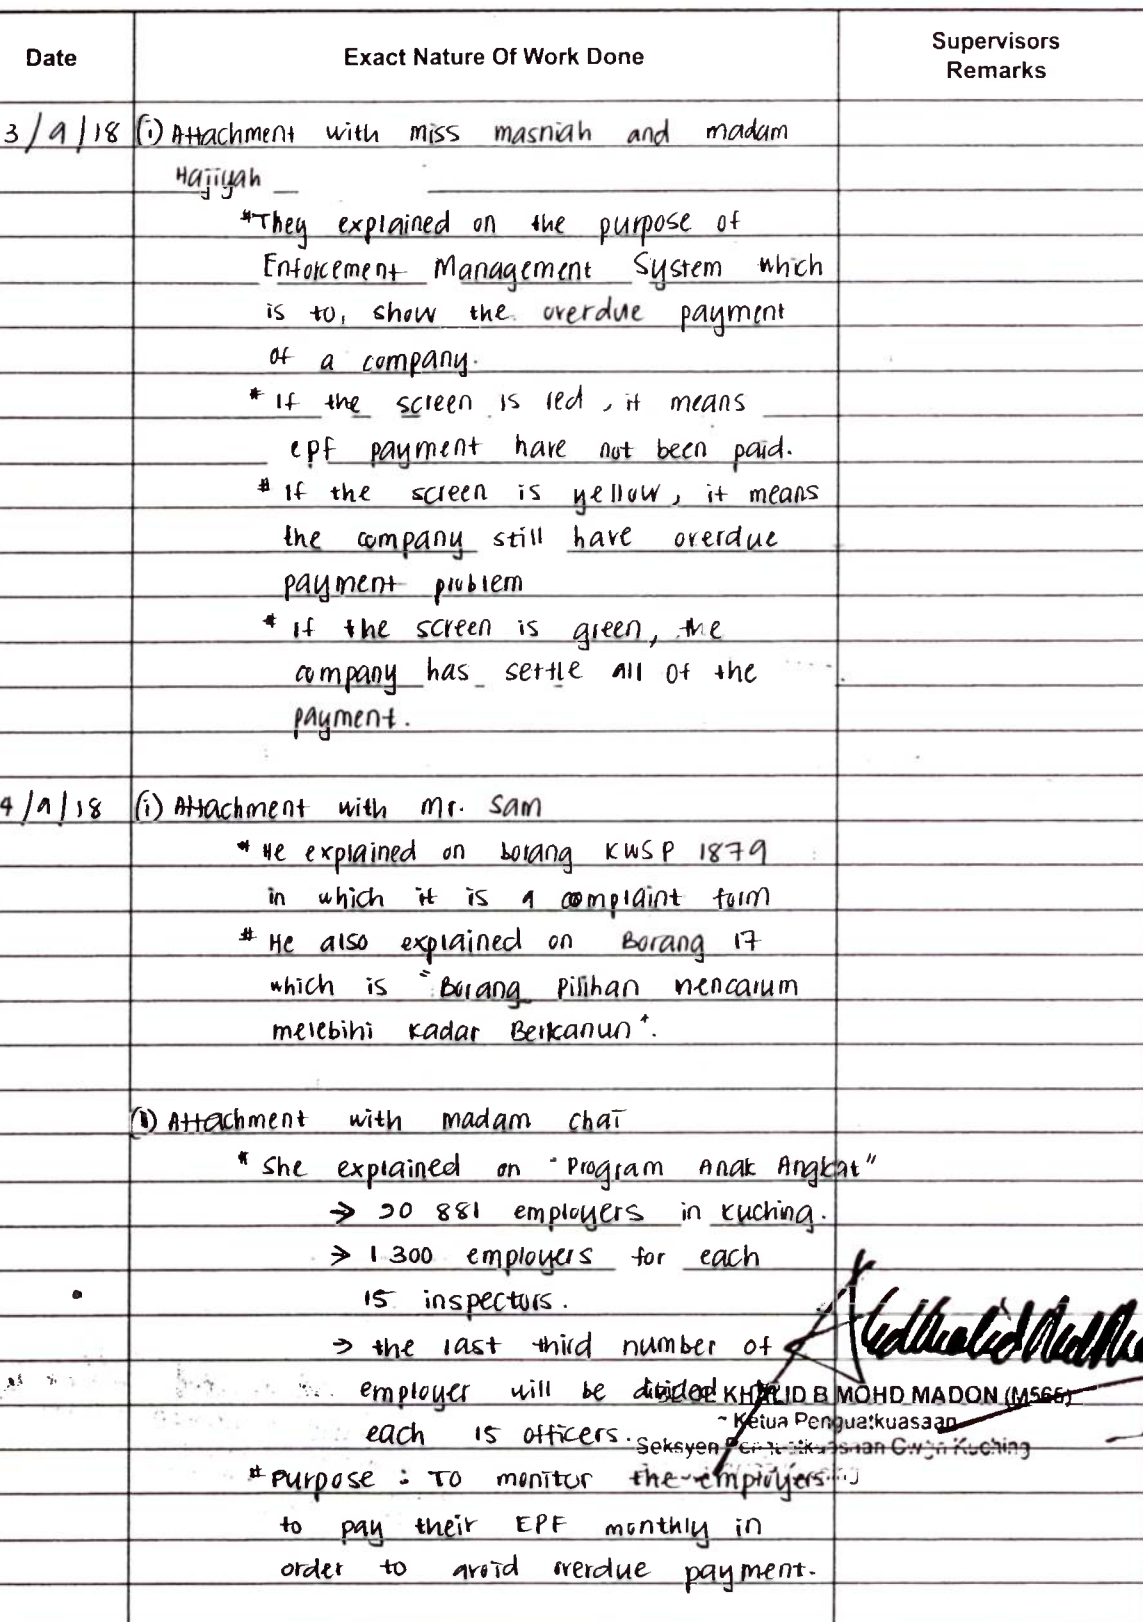 Date Exact Nature Of Work Done Supervisors
Remarks
3/9/18 (i) Attachment with miss masniah and madam
Hajiyah
*They explained on the purpose of
Enforcement Management System which
is to, show the overdue payment
of a company.
* If the screen is red, it means
epf payment have not been paid.
* If the screen is yellow, it means
the company still have overdue
payment problem
* If the screen is green, the
company has settle all of the
payment.
4/9/18 (i) Attachment with Mr. Sam
* He explained on borang KWSP 1879
in which it is a complaint form
* He also explained on Borang 17
which is "Borang Pilihan mencarum
melebihi Kadar Berkanun".
Attachment with madam Chai
* She explained on "Program Anak Angkat"
→ 20 881 employers in Kuching.
→ 1 300 employers for each
15 inspectors.
→ the last third number of
employer will be divided
each 15 officers.
KHALID B MOHD MADON (M566)
Ketua Penguatkuasaan
Seksyen Penguatkuasaan Cwgn Kuching
* Purpose : To monitor the employers
to pay their EPF monthly in
order to avoid overdue payment.